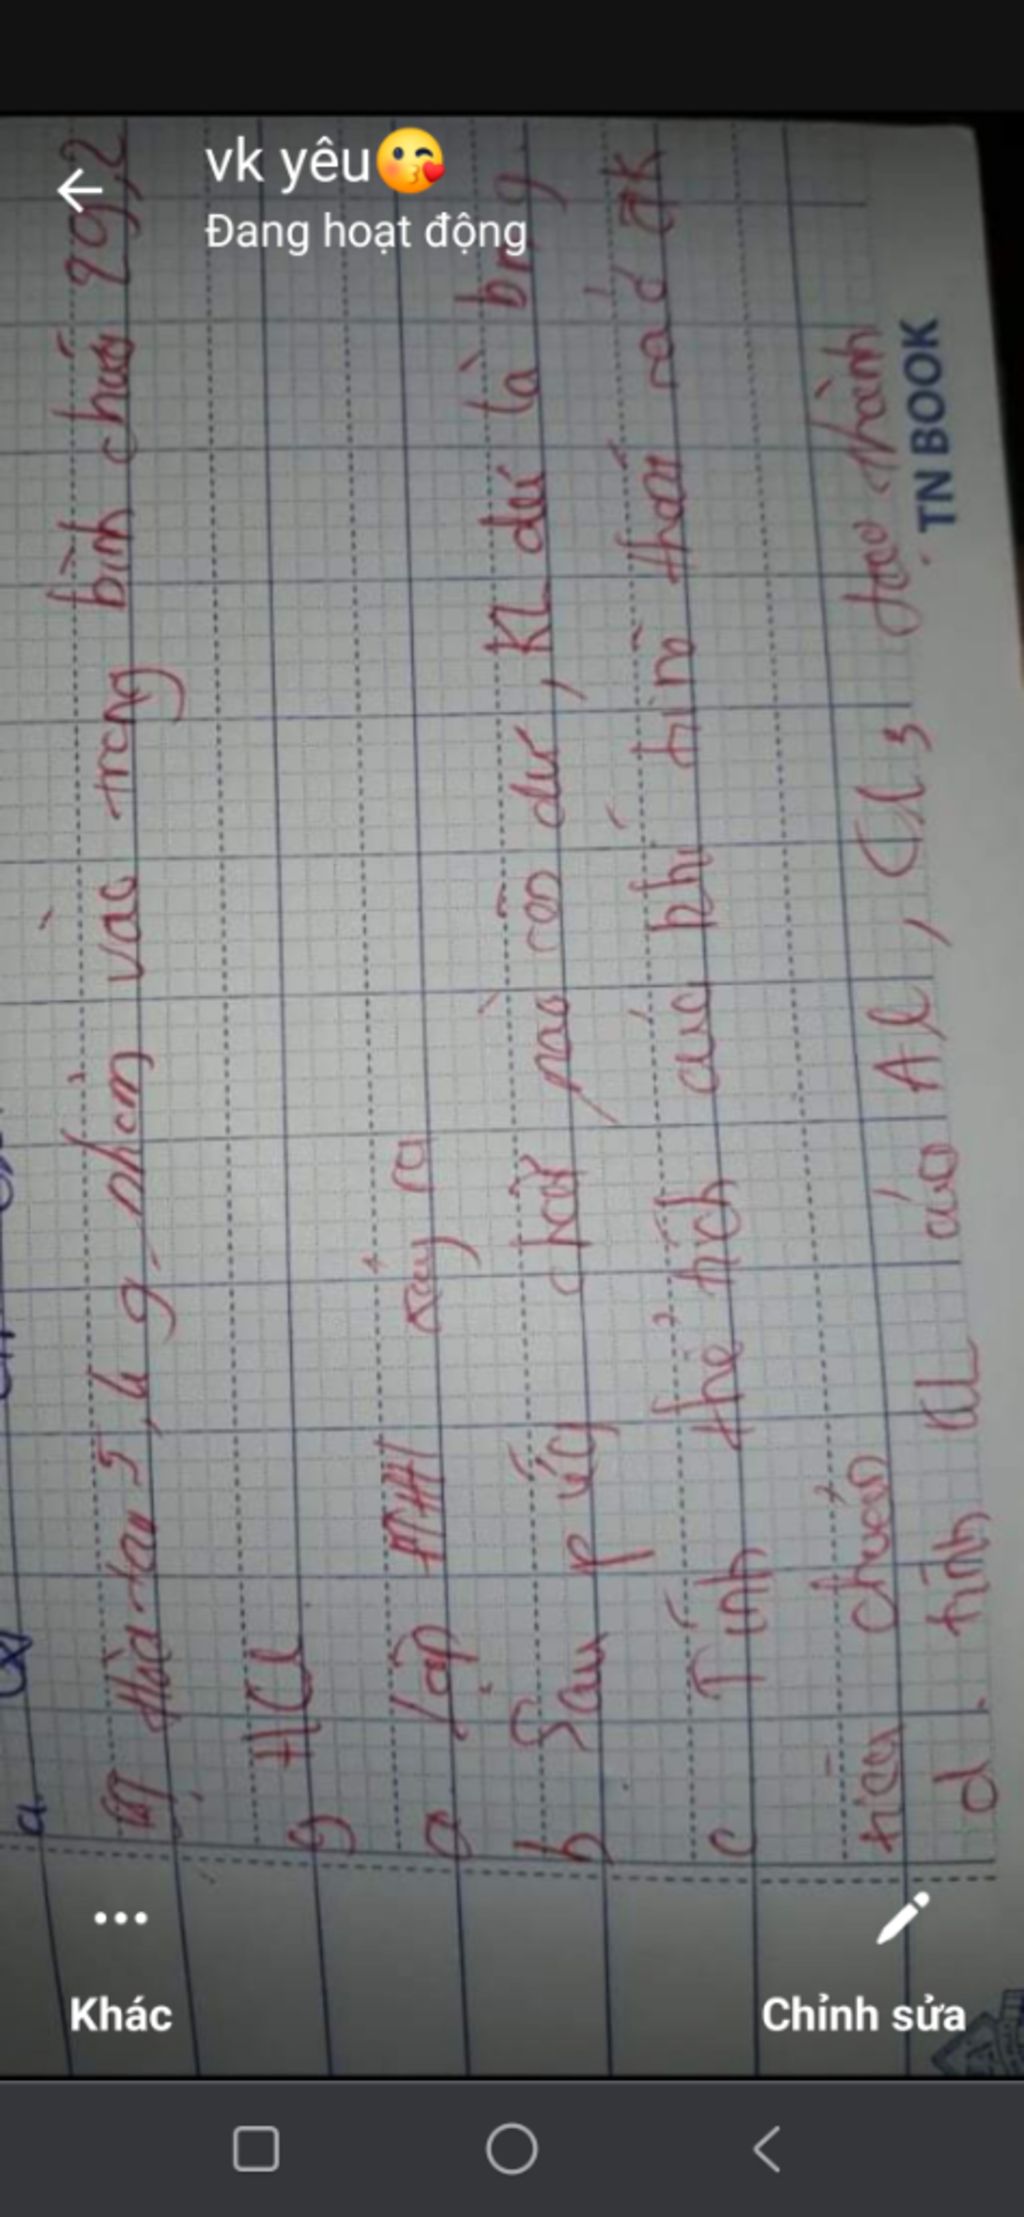 vk yêu😘
Đang hoạt động
a
Hòa tan 5,4 g nhôm vào trong bình chứa 29,2
g HCl
a lập PTHH xảy ra
b Sau p ứng chất nào còn dư, KL dư là b n g
c Tính thể tích của khí hiđrô thoát ra ở đk
tiêu chuẩn
d. tính KL của Al, Cl3 tạo thành
TN BOOK
Khác
Chỉnh sửa